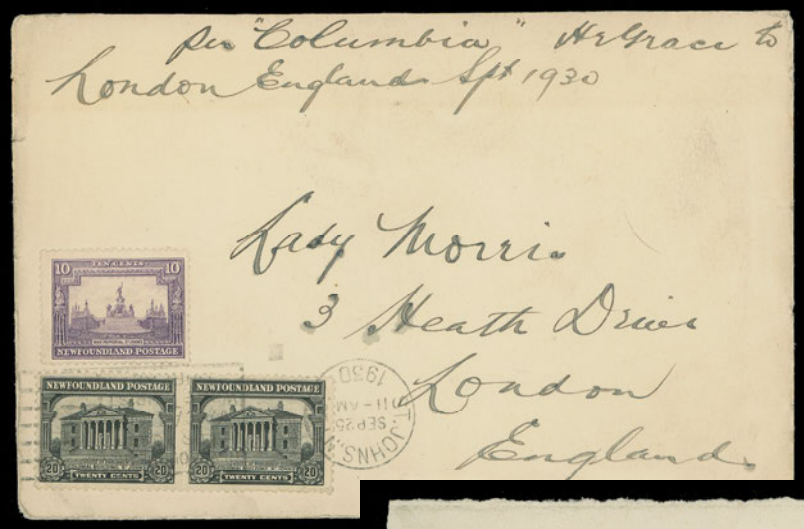 per "Columbia" Hr Grace to
London England Spt 1930
Lady Morris
3 Heath Drive
London
England
TEN CENTS
10 10
WAR MEMORIAL ST. JOHN'S
NEWFOUNDLAND POSTAGE
NEWFOUNDLAND POSTAGE
20 20
TWENTY CENTS
NEWFOUNDLAND POSTAGE
20 20
TWENTY CENTS
ST. JOHN'S, N
SEP 25
11-AM
1930